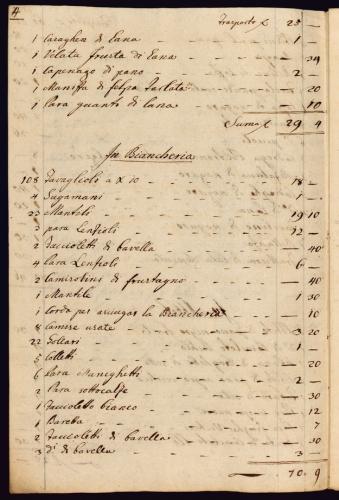 4
Trasporto £ 25 —
1 Caraghen di Lana - - 1 —
1 Velata frusta di Lana - - — 34
1 Capenago di pano - - 2 —
1 Maniza di felpa - - — 20
1 Para guanti di lana - - — 10
Suma £ 29 4
In Biancheria
108 Tavaglioli a x 10 - - 18 —
4 Sugamani - - 1 —
23 Mantili - - 19 10
3 para Lenzioli - - 12 —
2 Faccioletti di bavella - - — 40
4 Para Lenzioli - - 6
2 Camisolini di frustagno - - — 40
1 Mantile - - 1 30
1 Corda per sciugar la Biancheria - - — 10
8 Camise usate - - 3 20
22 Collari - - 1
5 Colletti - - — 20
6 Para Maneghetti - - 2 —
2 Para sottocalze - - — 30
1 Faccioletto bianco - - — 12
1 Bareta - - — 7
2 Faccioletti di bavella - - — 30
3 D.i di bavella - - 3 —
70 9